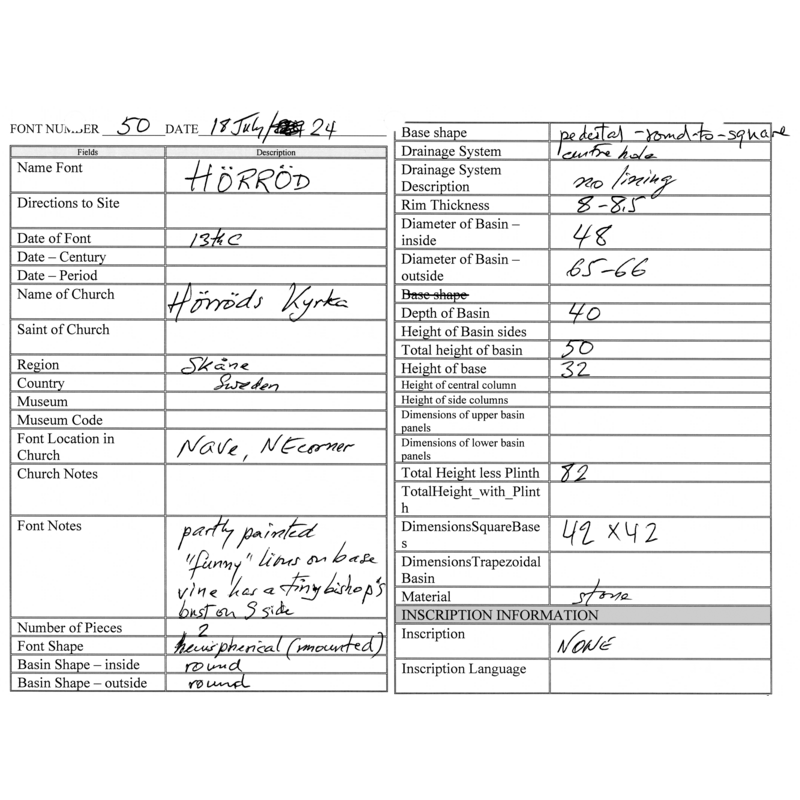 FONT NUMBER 50 DATE 18 July/ 24
Fields Description
Name Font HÖRRÖD
Directions to Site
Date of Font 13th C
Date – Century
Date – Period
Name of Church Hörröds Kyrka
Saint of Church
Region Skåne
Country Sweden
Museum
Museum Code
Font Location in Church Nave, NE corner
Church Notes
Font Notes partly painted
"funny" lions on base
vine has a tiny bishop's
bust on S side
Number of Pieces 2
Font Shape hemispherical (mounted)
Basin Shape – inside round
Basin Shape – outside round
Base shape pedestal - round-to-square
Drainage System centre hole
Drainage System
Description no lining
Rim Thickness 8-8.5
Diameter of Basin –
inside 48
Diameter of Basin –
outside 65-66
Base shape
Depth of Basin 40
Height of Basin sides
Total height of basin 50
Height of base 32
Height of central column
Height of side columns
Dimensions of upper basin
panels
Dimensions of lower basin
panels
Total Height less Plinth 82
TotalHeight_with_Plint
h
DimensionsSquareBase
s 42 x 42
DimensionsTrapezoidal
Basin
Material stone
INSCRIPTION INFORMATION
Inscription NONE
Inscription Language